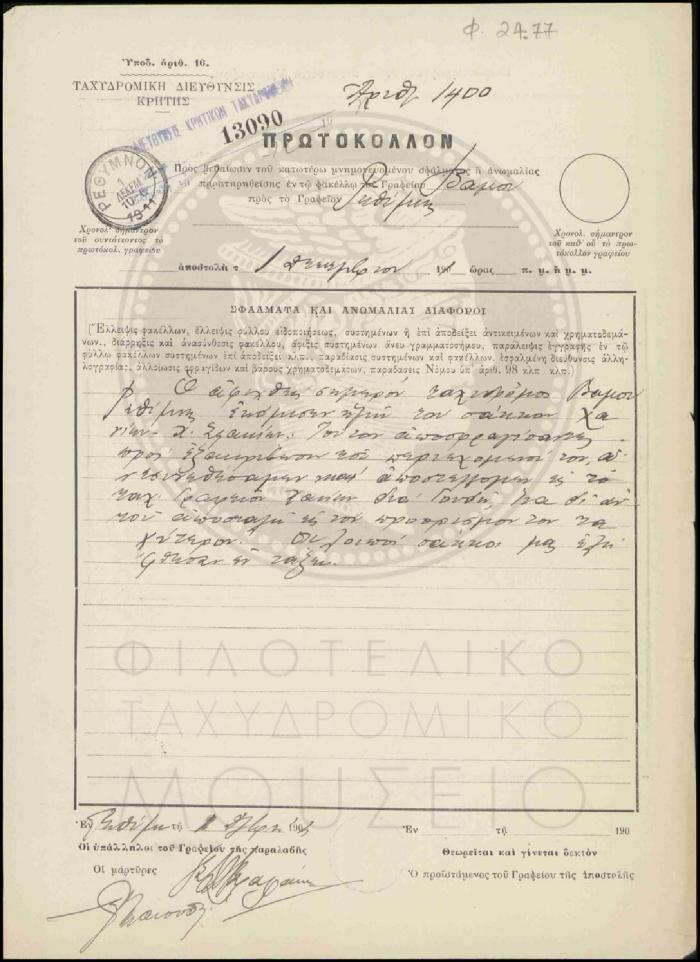 Φ. 24.77
Ὑποδ. ἀριθ. 16.
ΤΑΧΥΔΡΟΜΙΚΗ ΔΙΕΥΘΥΝΣΙΣ
ΚΡΗΤΗΣ
Ἀριθ 1400
ΚΡΗΤΙΚΩΝ
13090
ΠΡΩΤΟΚΟΛΛΟΝ
ΡΕΘΥΜΝΟΝ
1
ΔΕΚΕΜ
1911
Πρὸς βεβαίωσιν τοῦ κατωτέρω μνημονευομένου σφάλματος ἢ ἀνωμαλίας
παρατηρηθείσης ἐν τῷ φακέλλῳ τοῦ Γραφείου Βάμου
πρὸς τὸ Γραφεῖον Ρεθύμνης
Χρονολ. σήμαντρον
τοῦ συντάττοντος τὸ
πρωτόκολ. γραφείου
Χρονολ. σήμαντρον
τοῦ καθ' οὗ τὸ πρω-
τόκολλον γραφείου
ἀποστολὴ τ 1 190 ὥρας π. μ. ἢ μ. μ.
ΣΦΑΛΜΑΤΑ ΚΑΙ ΑΝΩΜΑΛΙΑΙ ΔΙΑΦΟΡΟΙ
(Ἔλλειψις φακέλλων, ἔλλειψις φύλλου εἰδοποιήσεως, συστημένων ἢ ἐπὶ ἀποδείξει ἀντικειμένων καὶ χρηματοδεμά-
νων, διάρρηξις καὶ ἀνασύνθεσις φακέλλου, ἄφιξις συστημένων ἄνευ γραμματοσήμου, παράλειψις ἐγγραφῆς ἐν τῷ
φύλλῳ φακέλλων συστημένων ἐπὶ ἀποδείξει κλπ., παραβίασις συστημένων καὶ φακέλλων, ἐσφαλμένη διεύθυνσις ἀλλη-
λογραφίας, ἀλλοίωσις σφραγίδων καὶ βάρους χρηματοδεμάτων, παραδάσεις Νόμου ὑπ' ἀριθ. 98 κλπ κλπ.)
Ὁ ἀφιχθεὶς σήμερον ταχυδρόμος Βάμου
Ρεθύμνης ἐκόμισεν ἡμῖν τὸν σάκκον Χα
νίων - Σφακίων. Τοῦτον ἀποσφραγίσαντες
πρὸς ἐξακρίβωσιν τοῦ περιεχομένου του,
καὶ ἀποστέλλομεν εἰς τὸ
ταχ. Γραφεῖον Χανίων διὰ
εἰς τὸν προορισμόν του τα
χύτερον. Οἱ λοιποὶ σάκκοι μᾶς
ἐν τάξει.
ΦΙΛΟΤΕΛΙΚΟ
ΤΑΧΥΔΡΟΜΙΚΟ
ΜΟΥΣΕΙΟ
Ἐν Ρεθύμνῃ τῇ 1 190
Οἱ ὑπάλληλοι τοῦ Γραφείου τῆς παραλαβῆς
Οἱ μάρτυρες
Ἐν τῇ 190
Θεωρεῖται καὶ γίνεται δεκτὸν
Ὁ προϊστάμενος τοῦ Γραφείου τῆς ἀποστολῆς